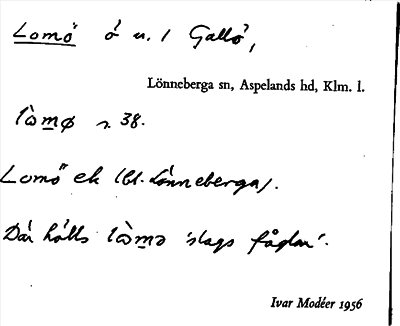 Lomö ö n. i Gallö,
Lönneberga sn, Aspelands hd, Klm. l.
lò̀mø s. 38.
Lomö ek (bl. Lönneberga).
Där hölls lò̀mə 'slags fåglar'.
Ivar Modéer 1956